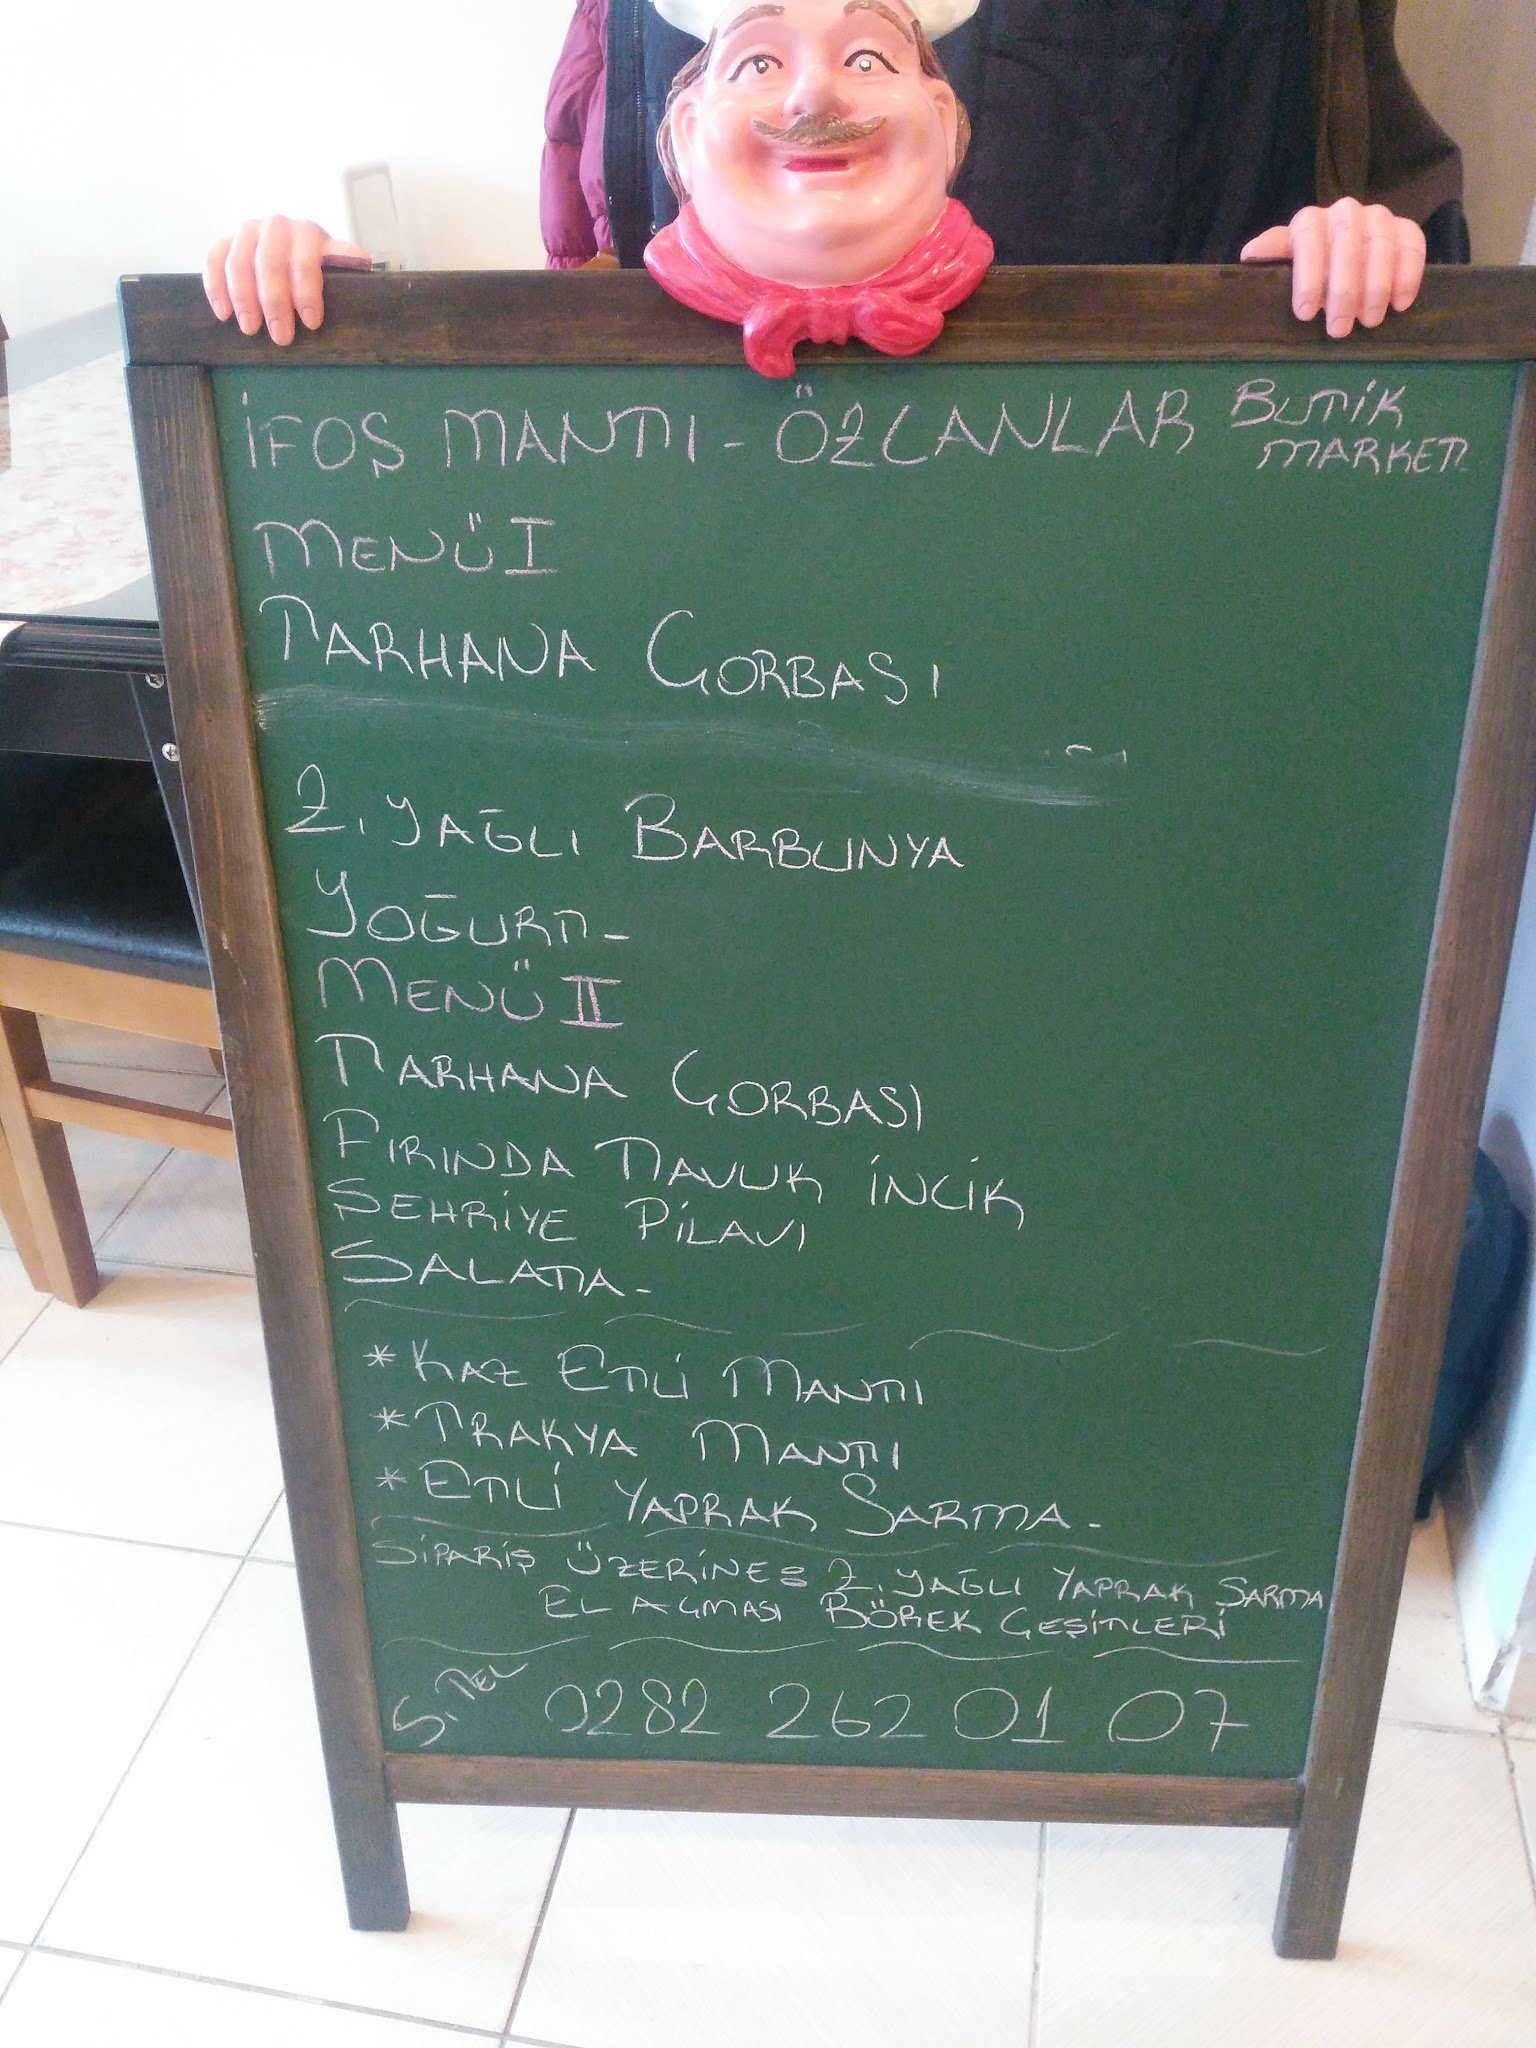 İFOŞ MANTI - ÖZCANLAR BUTİK MARKET
MENÜ I
TARHANA ÇORBASI
Z. YAĞLI BARBUNYA
YOĞURT-
MENÜ II
TARHANA ÇORBASI
FIRINDA TAVUK İNCİK
ŞEHRİYE PİLAVI
SALATA-
* KAZ ETLİ MANTI
* TRAKYA MANTI
* ETLİ YAPRAK SARMA-
SİPARİŞ ÜZERİNE: Z. YAĞLI YAPRAK SARMA
EL AÇMASI BÖREK ÇEŞİTLERİ
S. TEL 0282 262 01 07